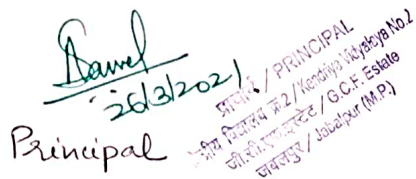 26/3/2021
Principal
प्राचार्य / PRINCIPAL
केन्द्रीय विद्यालय क्र.2 / Kendriya Vidyalaya No.2
जी.सी.एफ. इस्टेट / G.C.F. Estate
जबलपुर / Jabalpur (M.P.)